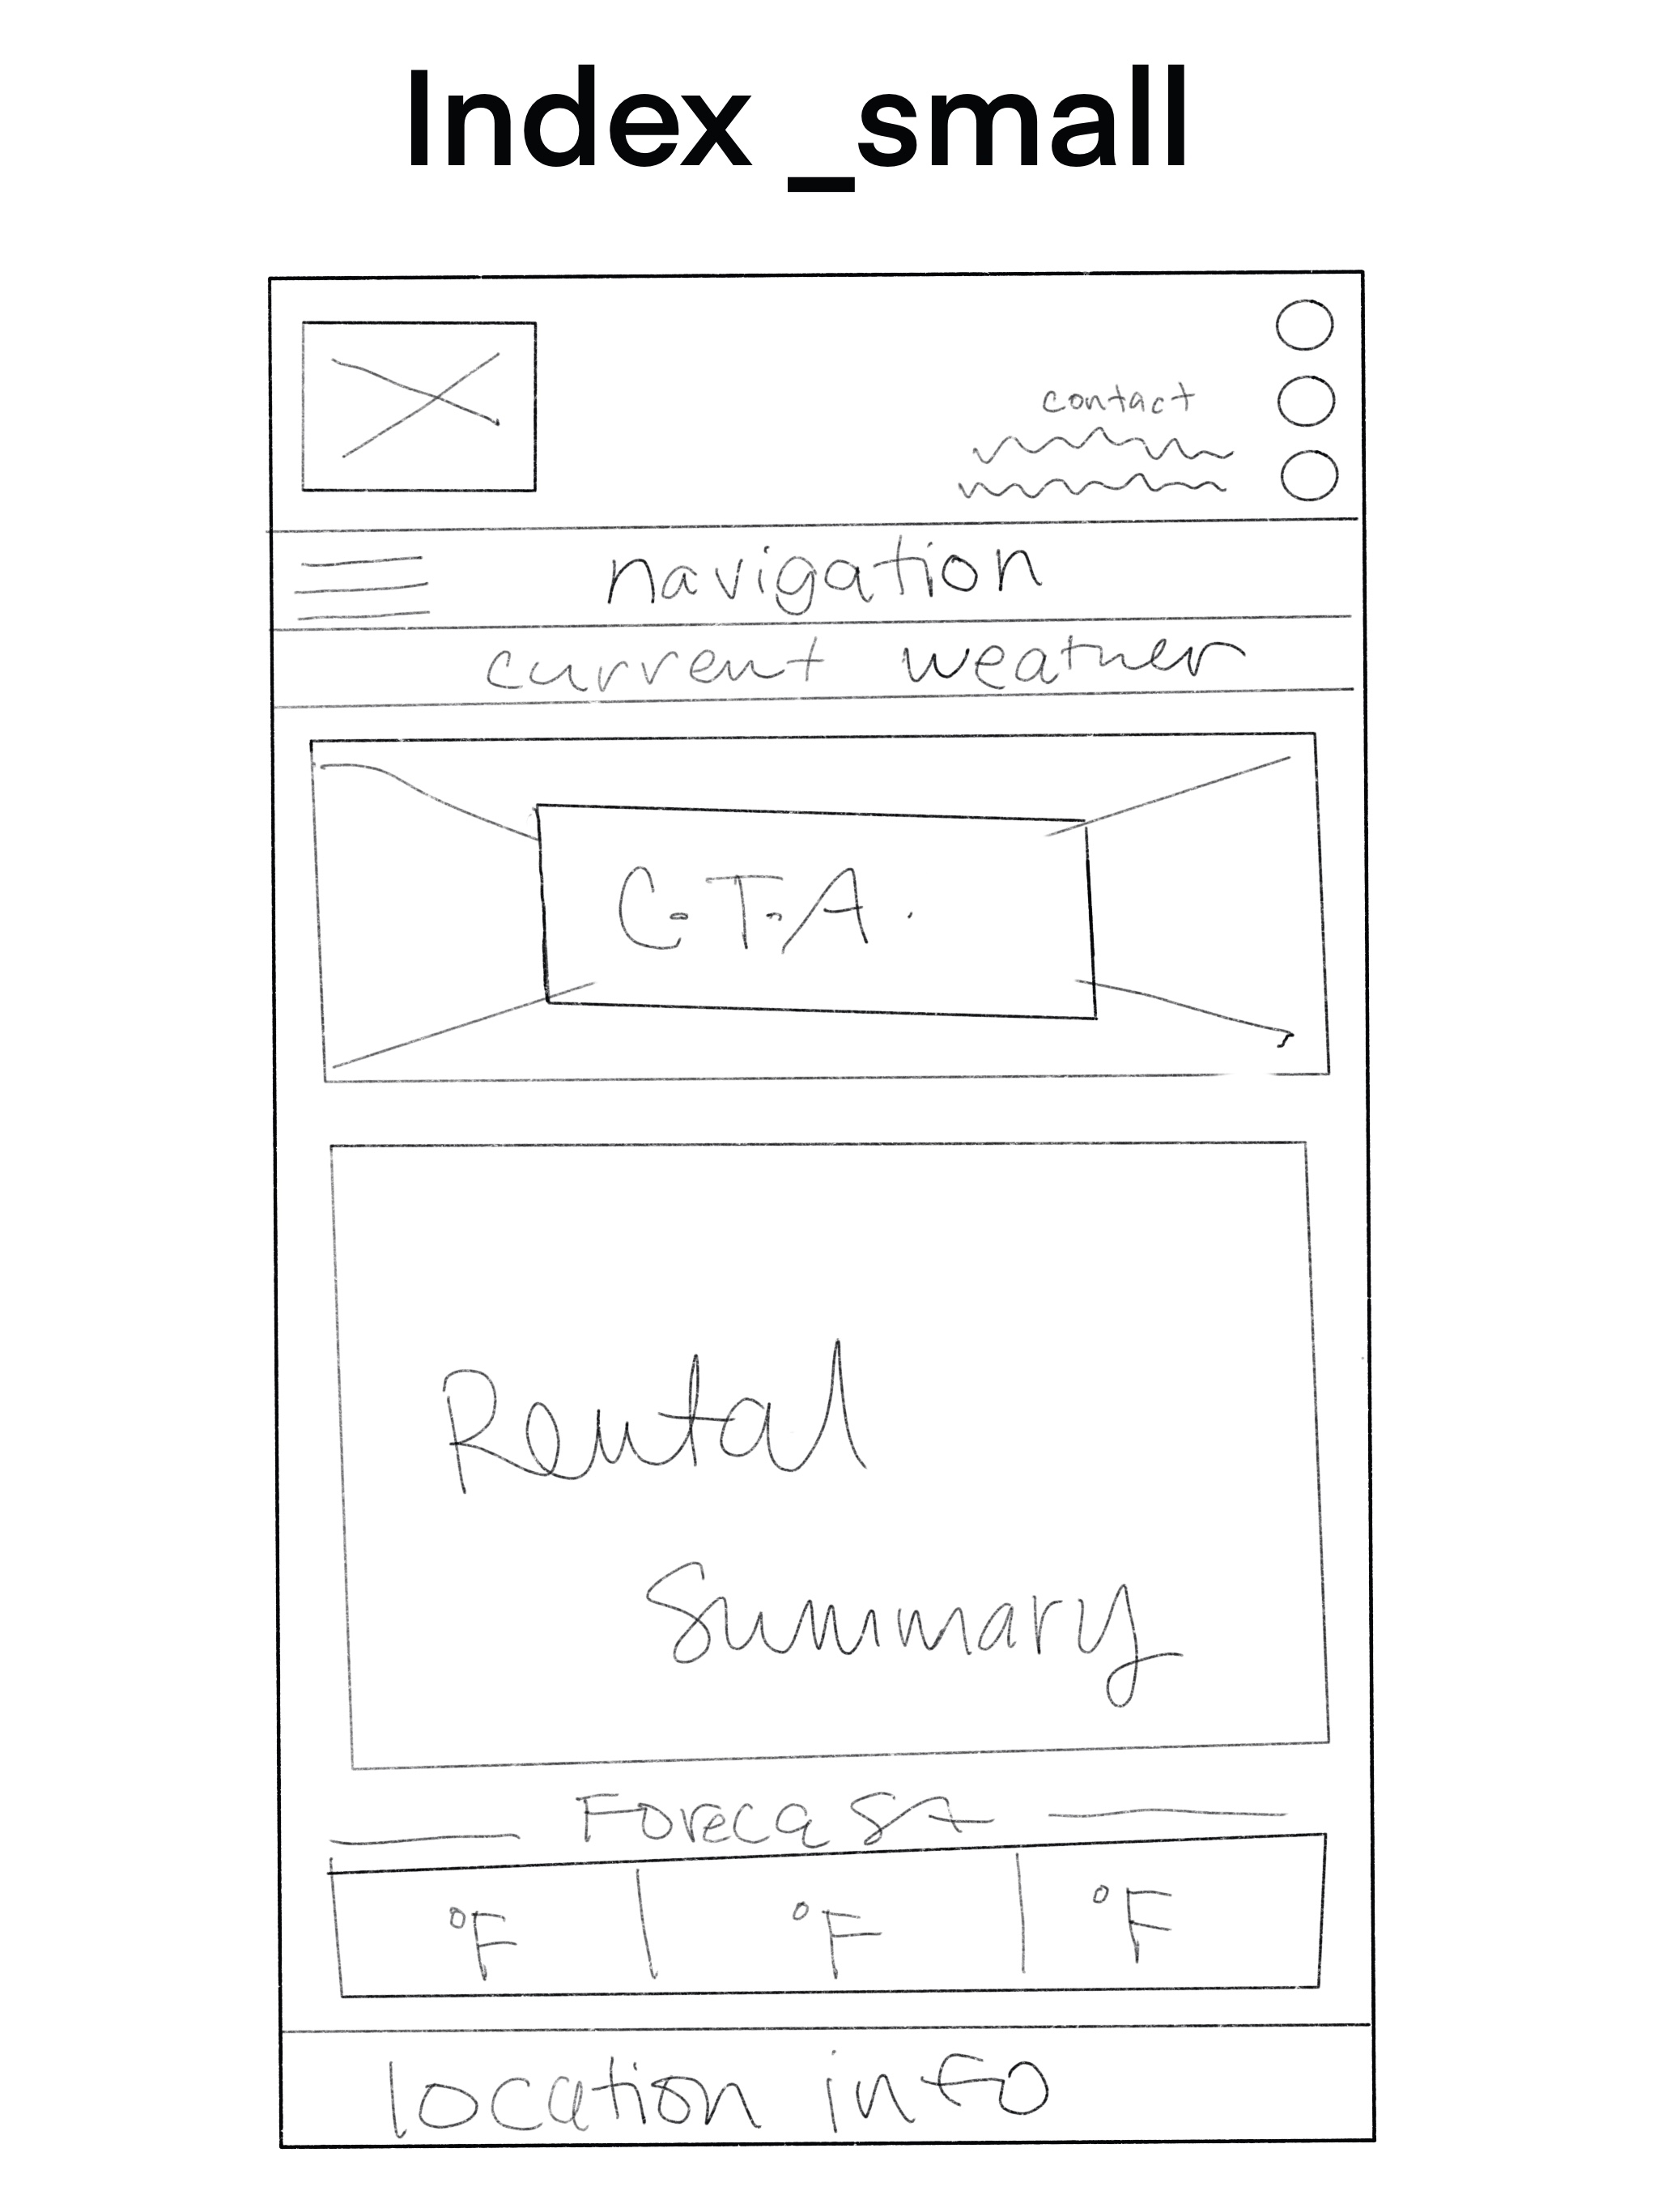 Index _small
contact
navigation
current weather
C.T.A.
Rental
Summary
Forecast
°F °F °F
location info